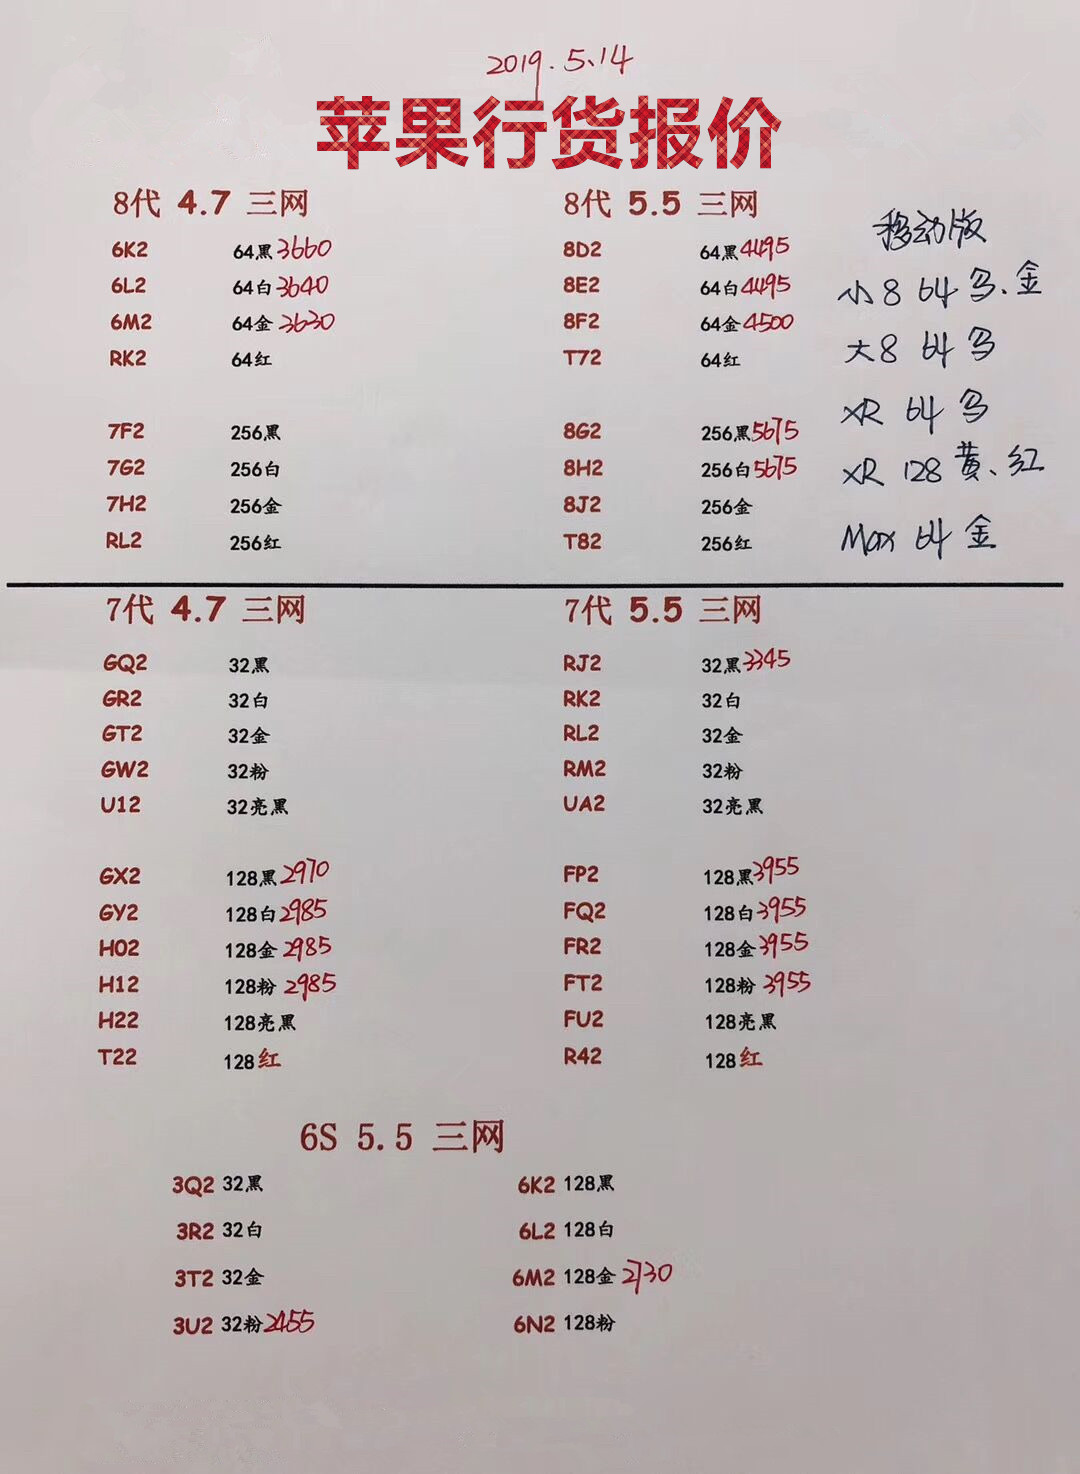 2019.5.14
苹果行货报价
8代 4.7 三网
6K2 64黑 3660
6L2 64白 3640
6M2 64金 3630
RK2 64红
7F2 256黑
7G2 256白
7H2 256金
RL2 256红
8代 5.5 三网
8D2 64黑 4495
8E2 64白 4495
8F2 64金 4500
T72 64红
8G2 256黑 5675
8H2 256白 5675
8J2 256金
T82 256红
移动版
小8 64 黑、金
大8 64 黑
XR 64 黑
XR 128 黄、红
Max 64 金
7代 4.7 三网
GQ2 32黑
GR2 32白
GT2 32金
GW2 32粉
U12 32亮黑
GX2 128黑 2970
GY2 128白 2985
H02 128金 2985
H12 128粉 2985
H22 128亮黑
T22 128红
7代 5.5 三网
RJ2 32黑 3345
RK2 32白
RL2 32金
RM2 32粉
UA2 32亮黑
FP2 128黑 3955
FQ2 128白 3955
FR2 128金 3955
FT2 128粉 3955
FU2 128亮黑
R42 128红
6S 5.5 三网
3Q2 32黑
3R2 32白
3T2 32金
3U2 32粉 2455
6K2 128黑
6L2 128白
6M2 128金 2730
6N2 128粉